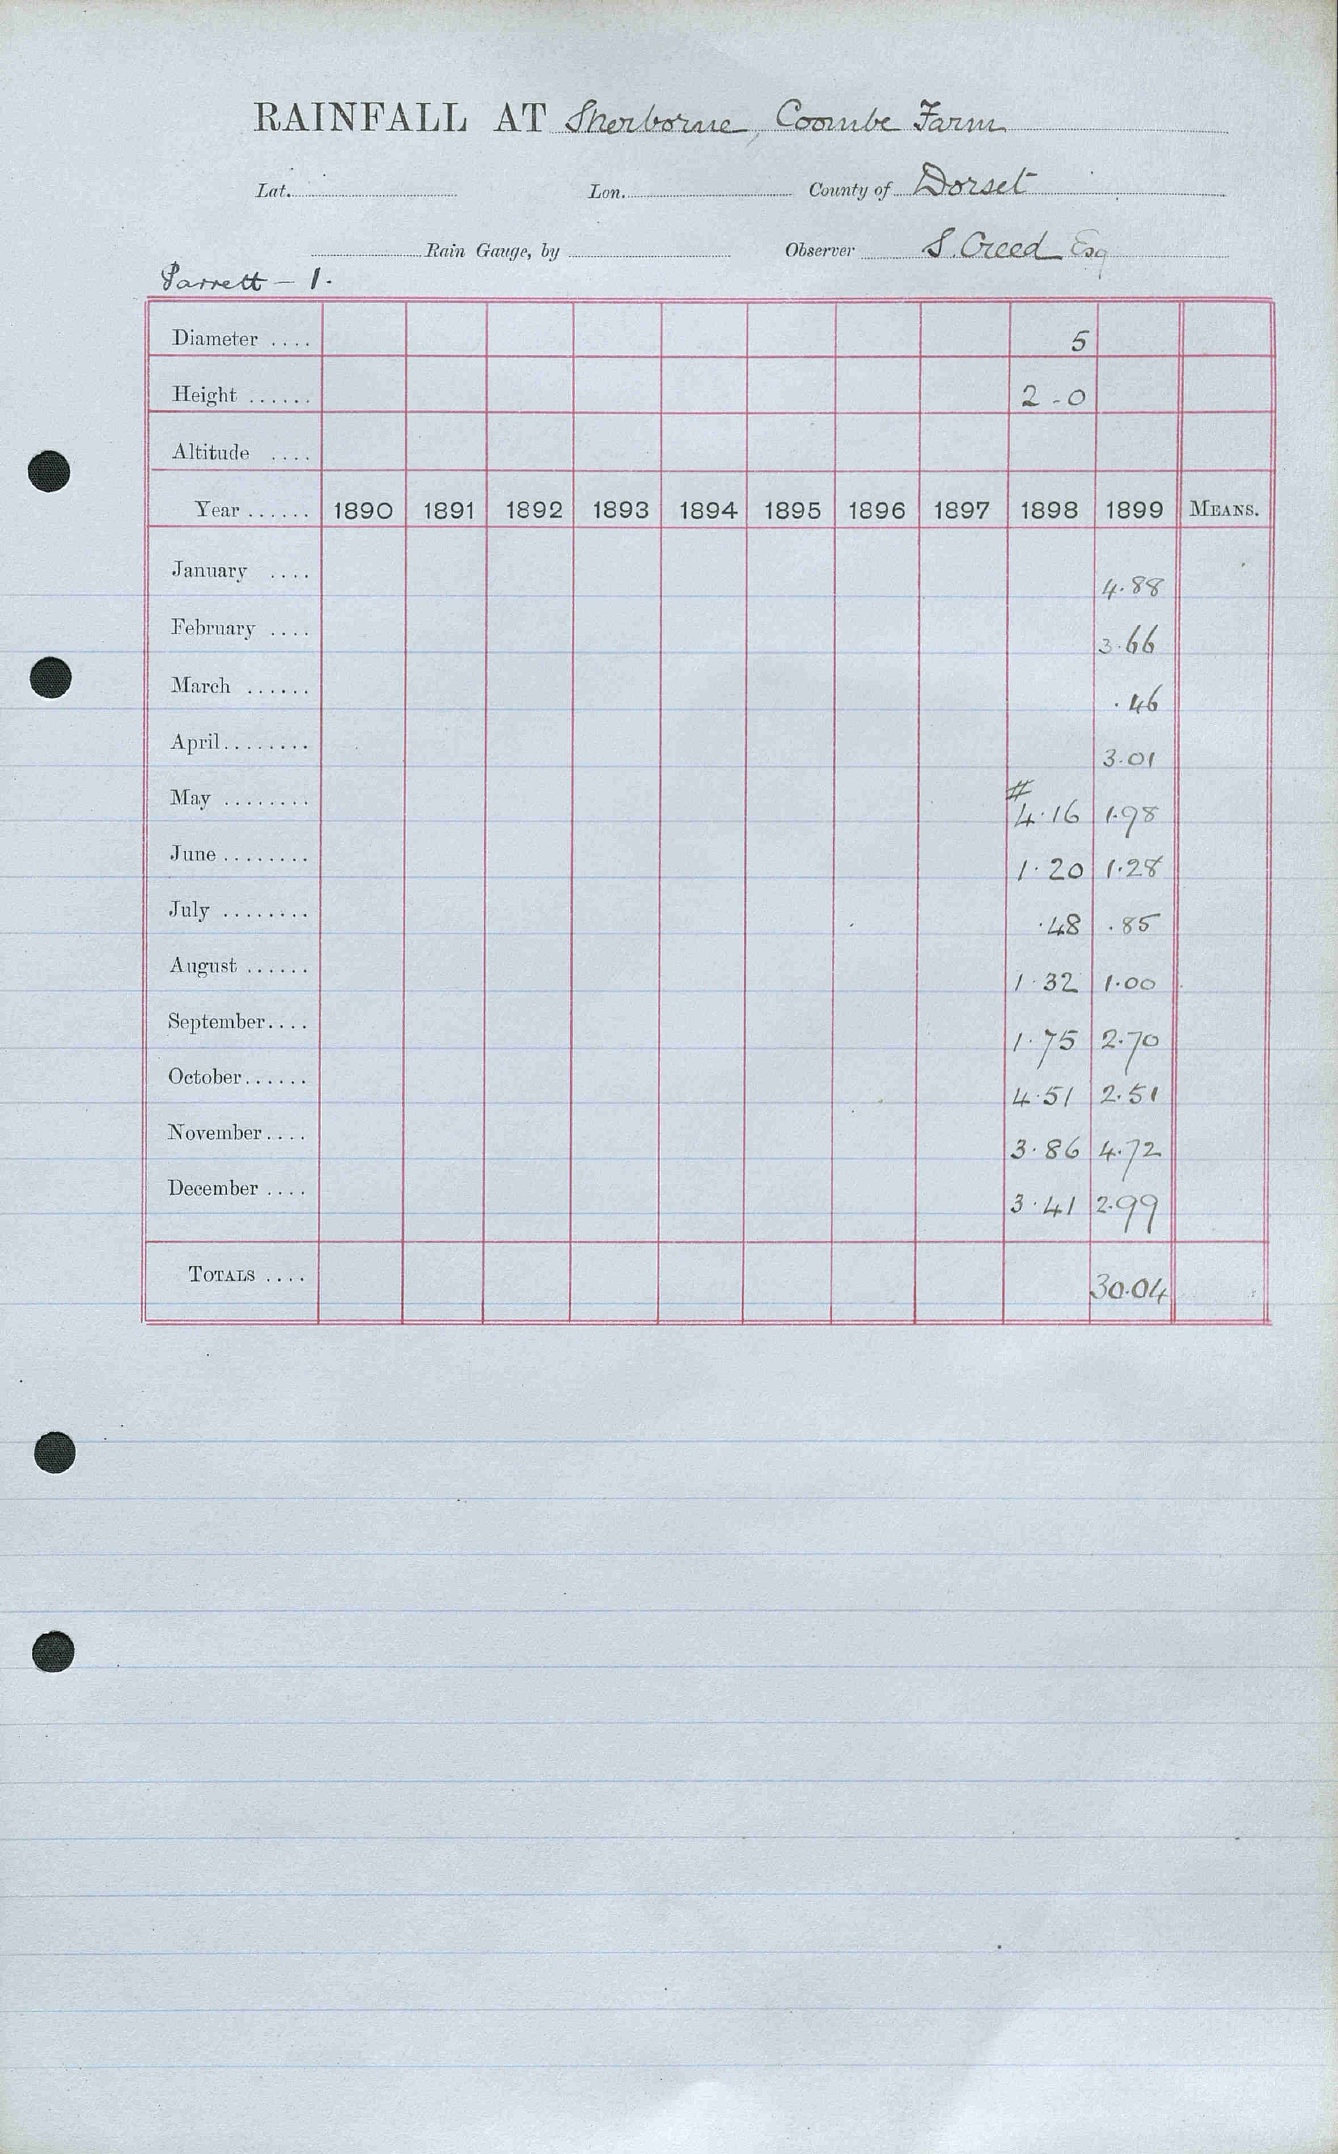 RAINFALL AT Sherborne, Coombe Farm
Lat. Lon. County of Dorset
Rain Gauge, by Observer S. Creed Esq
Parrett - 1.
Diameter .... 5
Height ...... 2 - 0
Altitude ....
Year ...... 1890 1891 1892 1893 1894 1895 1896 1897 1898 1899 MEANS.
January .... 4.88
February .... 3.66
March ...... .46
April ........ 3.01
May ........ # 4.16 1.98
June ........ 1.20 1.28
July ........ .48 .85
August ...... 1.32 1.00
September .... 1.75 2.70
October ...... 4.51 2.51
November .... 3.86 4.72
December .... 3.41 2.99
TOTALS .... 30.04